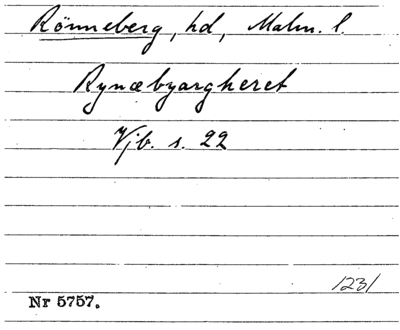 Rönneberg, hd, Malm. l.
Rynæbyargheret
Vjb. s. 22
1231
Nr 5757.